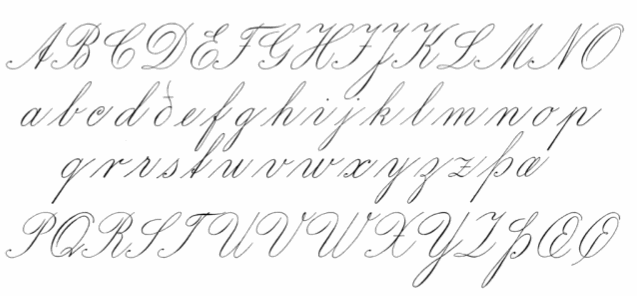 ABCDEFGHIJKLMNO
abcdðefghijklmnop
qrrstuvwxyzzþæ
PQRSTUVWXYZÞÆÖ